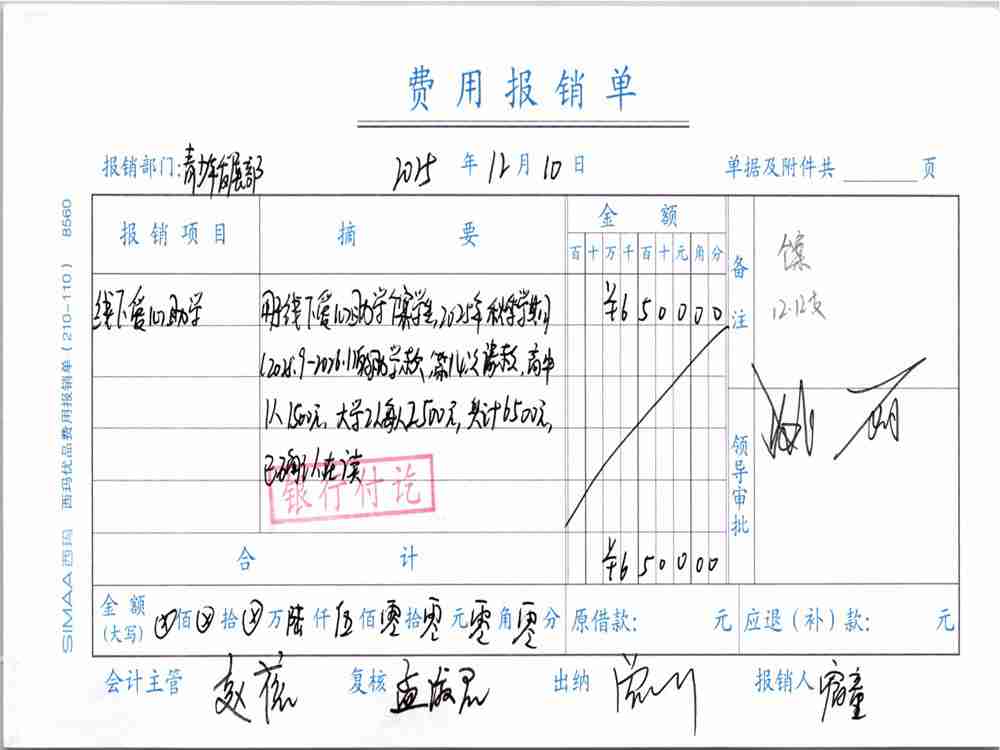 费用报销单
报销部门:青少年发展部 2025 年 12 月 10 日 单据及附件共 页
报销项目 摘要 金额
百十万千百十元角分
备注
12.12支
线下爱心助学 用于线下爱心助学 学生,2025年秋季学期 ¥650000
(2025.9-2026.1)助学款,第14次拨款,高中
1人1500元,大学2人每人2500元,共计6500元,
已确认在读
银行付讫
领导审批
合计 ¥650000
金额(大写) ⊗佰⊗拾⊗万陆仟伍佰零拾零元零角零分 原借款: 元 应退(补)款: 元
会计主管 赵 复核 孟淑君 出纳 报销人
SIMAA西玛 西玛优品费用报销单(210-110) 8560